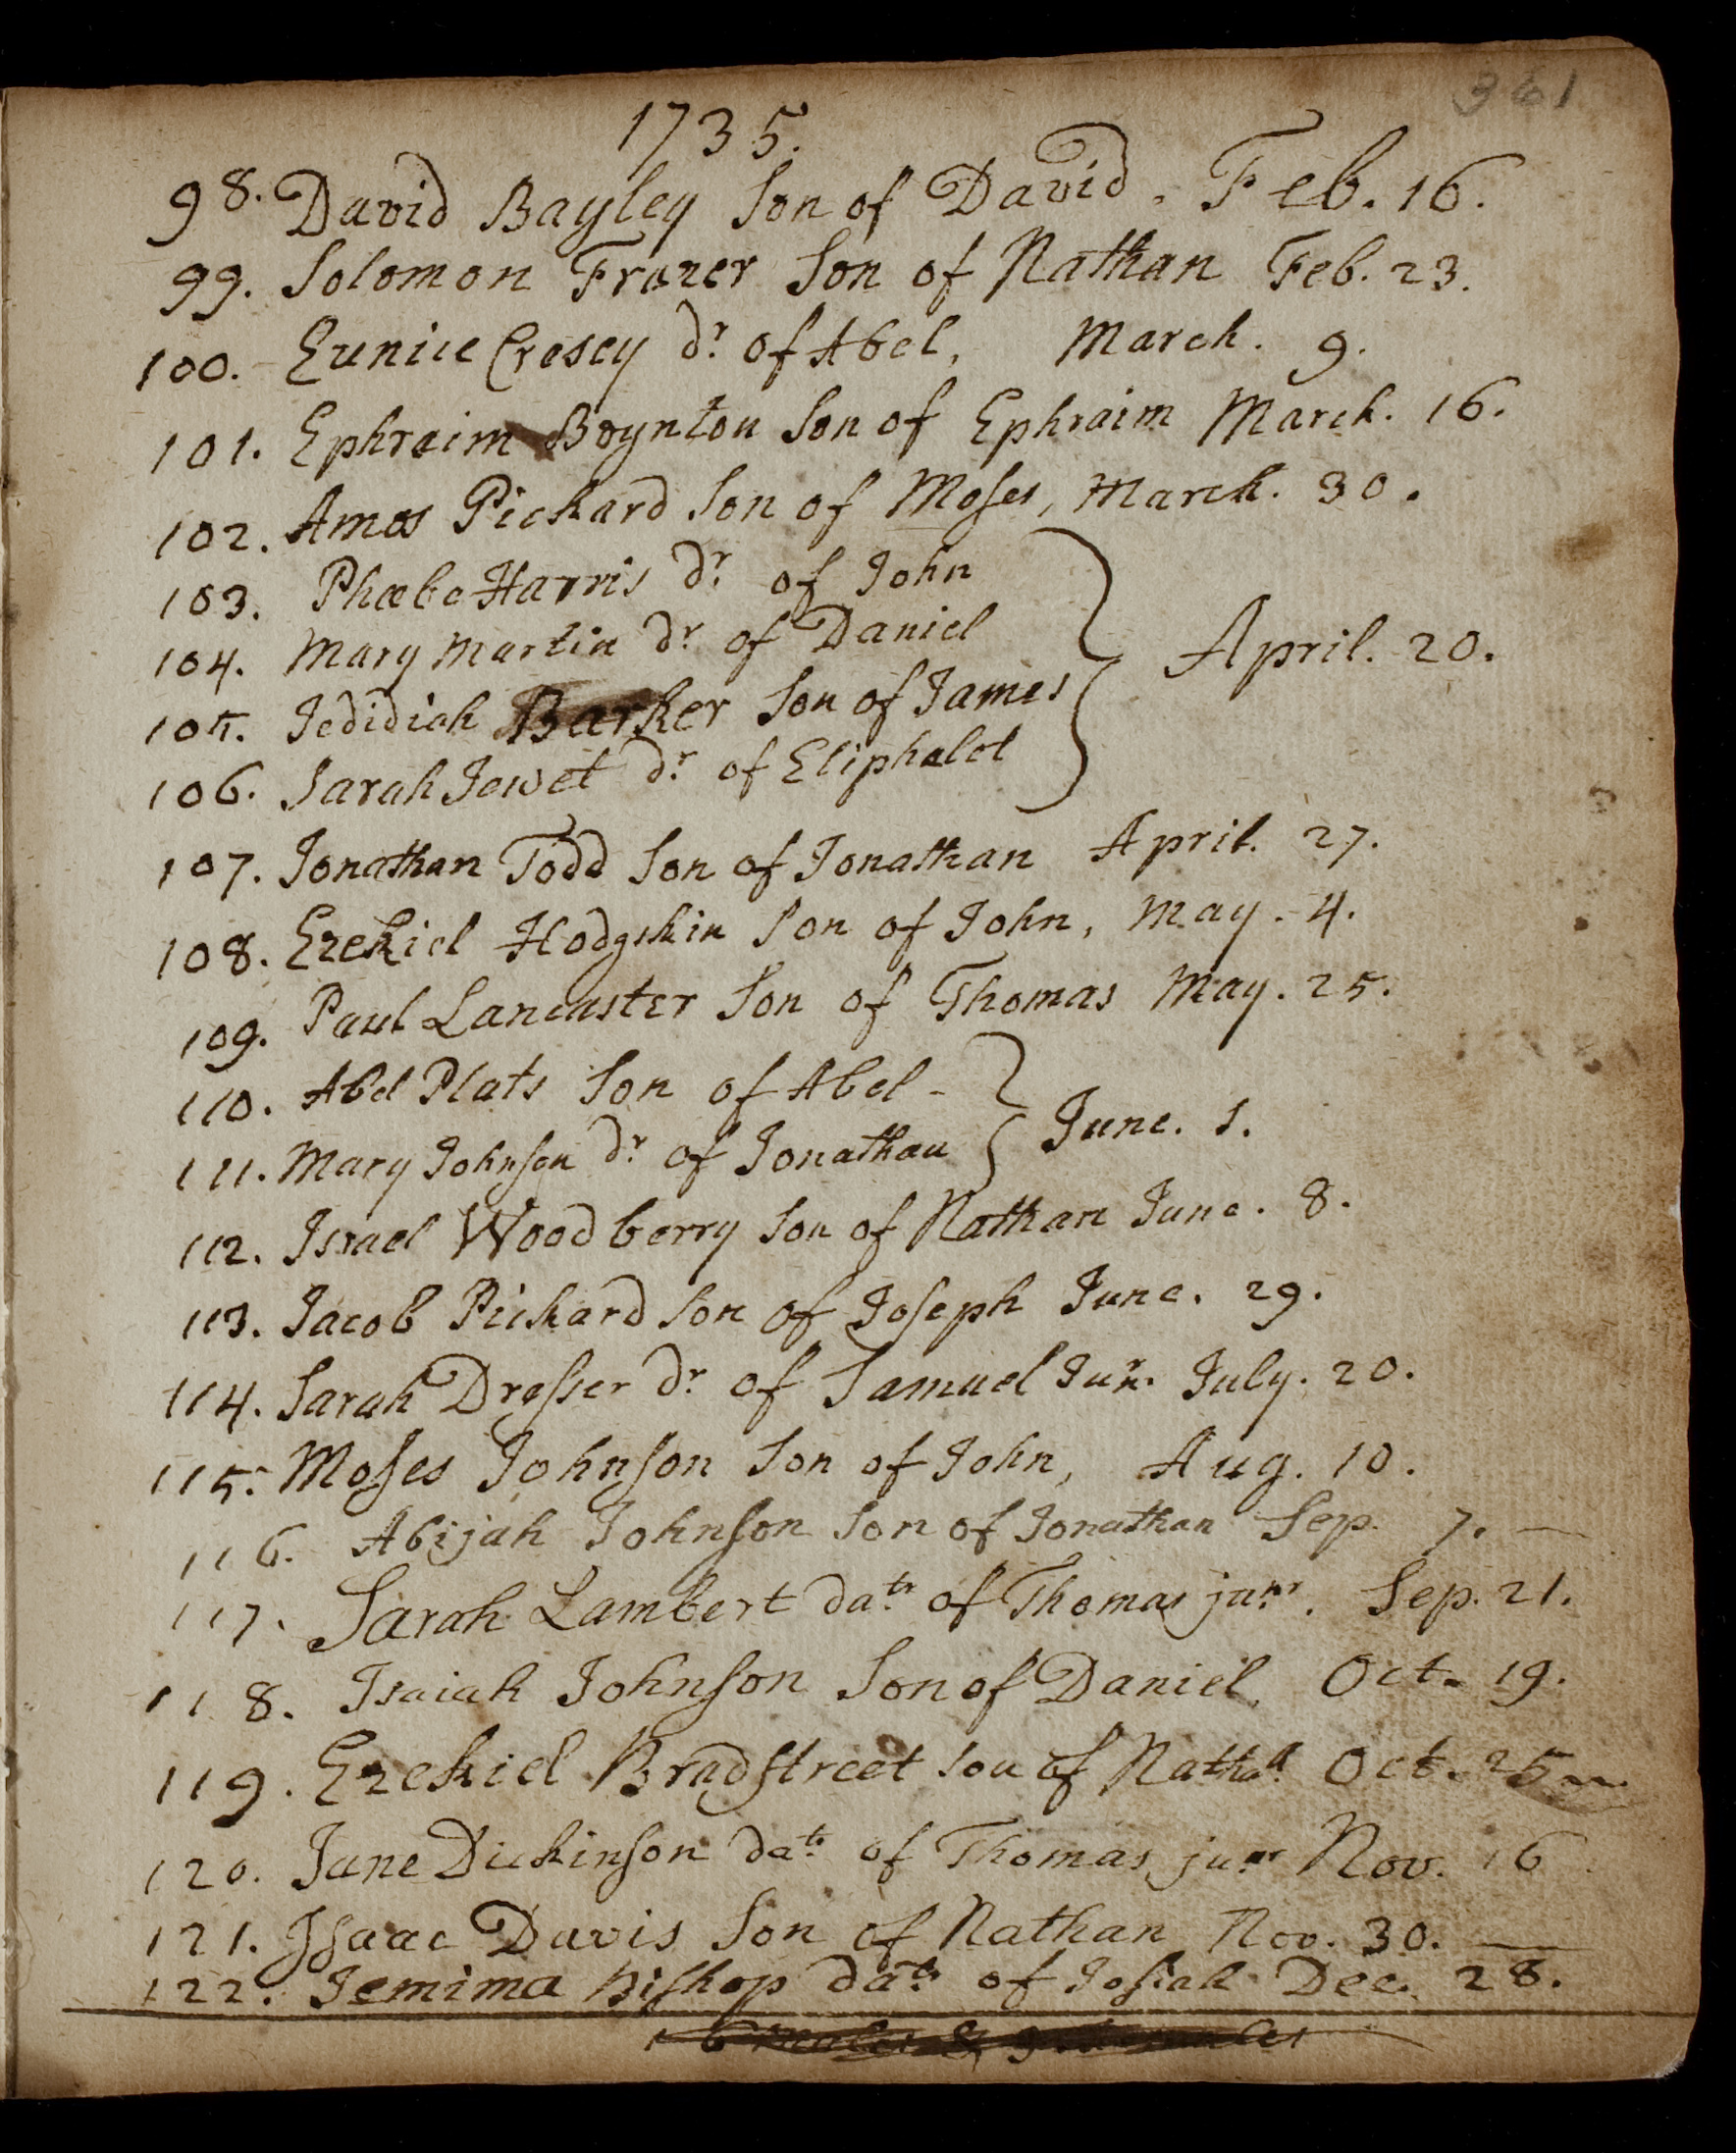 361
1735.
98. David Bayley Son of David. Feb. 16.
99. Solomon Frazer Son of Nathan Feb. 23.
100. Eunice Cresey dr. of Abel, March. 9.
101. Ephraim Boynton Son of Ephraim March. 16.
102. Amos Pickard Son of Moses, March. 30.
103. Phœbe Harris dr. of John
104. Mary Martin dr. of Daniel
April. 20.
105. Jedidiah Barker Son of James
106. Sarah Jewet dr. of Eliphalet
107. Jonathan Todd Son of Jonathan April. 27.
108. Ezekiel Hodgskin Son of John, May. 4.
109. Paul Lancaster Son of Thomas May. 25.
110. Abel Plats Son of Abel -
111. Mary Johnson dr. of Jonathan June. 1.
112. Israel Woodberry Son of Nathan June. 8.
113. Jacob Pickard Son of Joseph June. 29.
114. Sarah Dresser dr. of Samuel Junr. July. 20.
115. Moses Johnson Son of John, Aug. 10.
116. Abijah Johnson Son of Jonathan Sep. 7. —
117. Sarah Lambert datr. of Thomas junr. Sep. 21.
118. Isaiah Johnson Son of Daniel. Oct. 19.
119. Ezekiel Bradstreet Son of Nathll. Oct. 25
120. Jane Dickinson datr. of Thomas junr Nov. 16
121. Isaac Davis Son of Nathan Nov. 30. —
122. Jemima Bishop datr. of Josiah Dec. 28.